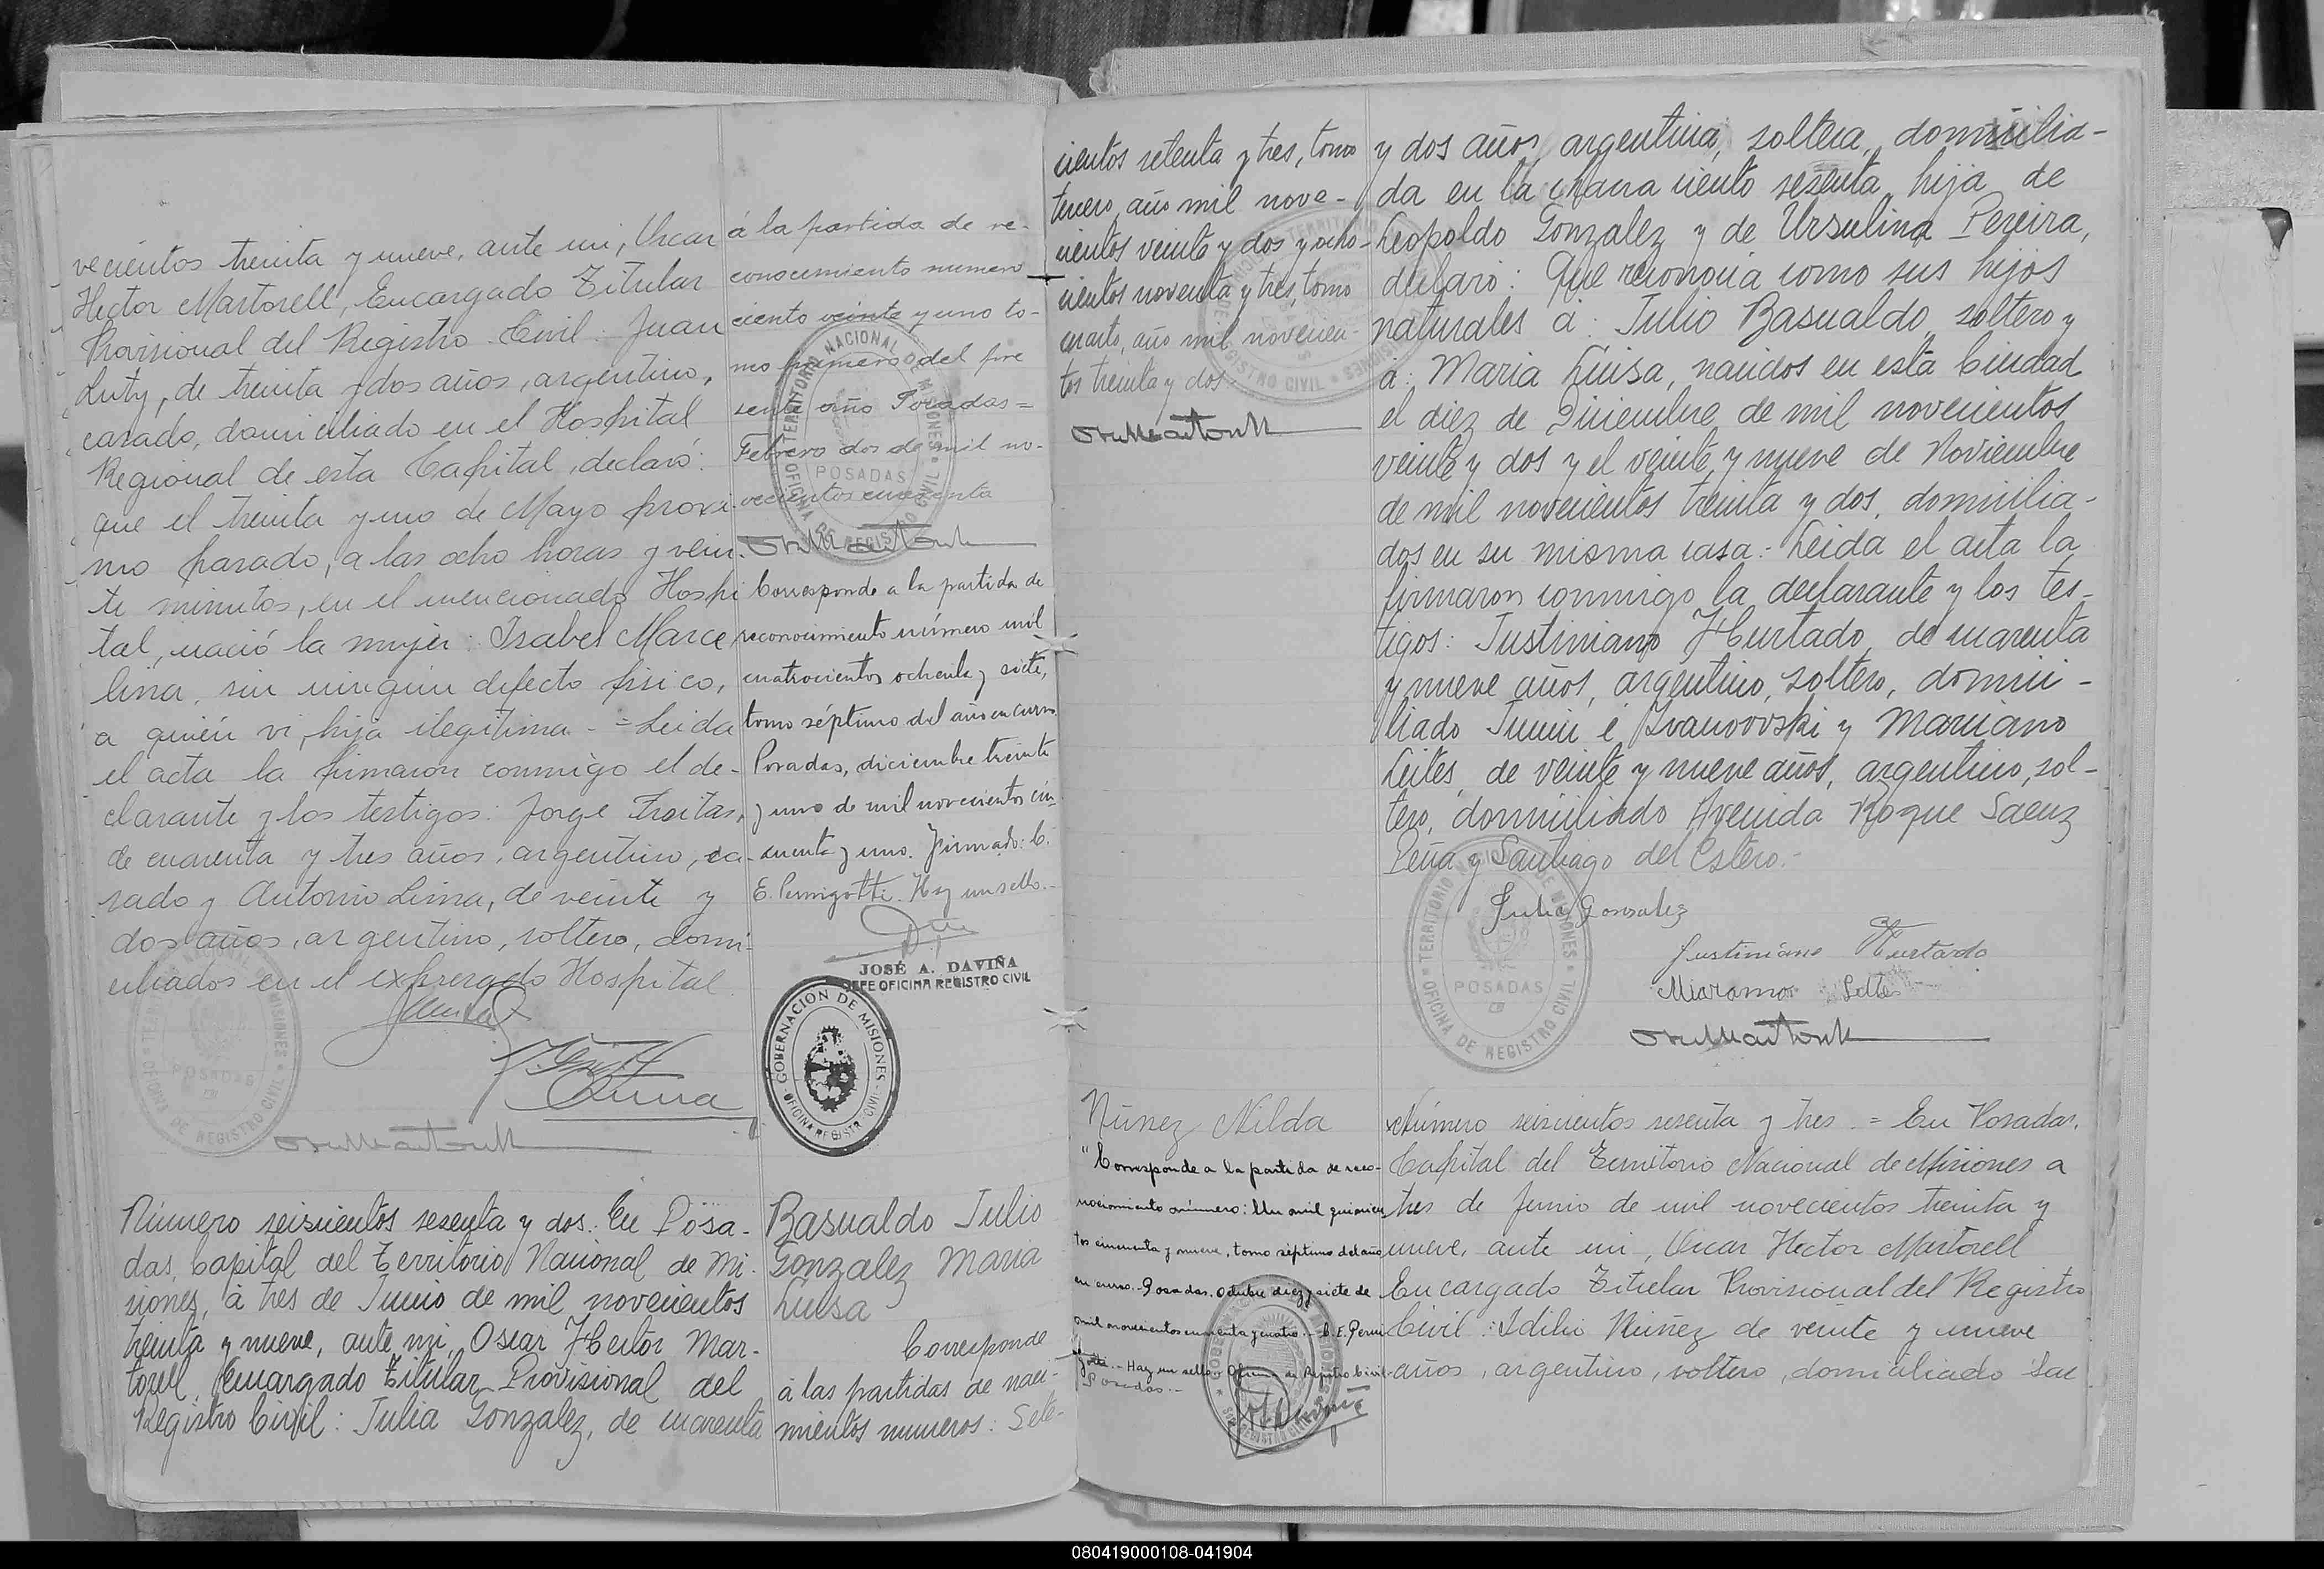 vecientos treinta y nueve, ante mi, Oscar
Hector Martorell, Encargado Titular
Provisional del Registro Civil: Juan
Luty, de treinta y dos años, argentino,
casado, domiciliado en el Hospital
Regional de esta Capital, declaró:
que el treinta y uno de Mayo proxi-
mo pasado, a las ocho horas y vein-
te minutos, en el mencionado Hospi
tal, nació la mujer: Isabel Marce
lina, sin ningún defecto fisico,
a quién vi, hija ilegitima. = Leida
el acta la firmaron conmigo el de-
clarante y los testigos: Jorge Freitas,
de cuarenta y tres años, argentino, ca-
sado y Antonio Lima, de veinte y
dos años, argentino, soltero, domi-
ciliados en el expresado Hospital.
Lima
TERRITORIO NACIONAL DE MISIONES
POSADAS
OFICINA DE REGISTRO CIVIL
á la partida de re-
conocimiento numero
ciento veinte y uno to-
mo primero del pre
sente año Posadas =
Febrero dos de mil no-
vecientos cuarenta
TERRITORIO NACIONAL DE MISIONES
POSADAS
OFICINA DE REGISTRO CIVIL
Corresponde a la partida de
reconocimiento número mil
cuatrocientos ochenta y siete,
tomo séptimo del año en curso.
Posadas, diciembre treinta
y uno de mil novecientos cin
cuenta y uno. Firmado: C.
E. Pernigotti. Hay un sello.-
JOSÉ A. DAVIÑA
JEFE OFICINA REGISTRO CIVIL
GOBERNACION DE MISIONES
OFICINA REGISTRO CIVIL
Número seiscientos sesenta y dos. En Posa-
das, Capital del Territorio Nacional de Mi-
siones, á tres de Junio de mil novecientos
treinta y nueve, ante mi, Oscar Hector Mar-
torell, Encargado Titular Provisional del
Registro Civil: Julia Gonzalez, de cuarenta
Basualdo Julio
Gonzalez Maria
Luisa
Corresponde
á las partidas de naci-
mientos numeros: Sete-
cientos setenta y tres, tomo
tercero, año mil nove-
cientos veinte y dos y ocho-
cientos noventa y tres, tomo
cuarto, año mil novecien-
tos treinta y dos
y dos años, argentina, soltera, domicilia-
da en la chacra ciento sesenta, hija de
Leopoldo Gonzalez y de Ursulina Pereira,
declaró: Que reconocia como sus hijos
naturales á: Julio Basualdo, soltero y
á: Maria Luisa, nacidos en esta Ciudad
el diez de Diciembre de mil novecientos
veinte y dos y el veinte y nueve de Noviembre
de mil novecientos treinta y dos, domicilia-
dos en su misma casa.- Leida el acta la
firmaron conmigo la declarante y los tes-
tigos: Justiniano Hurtado, de cuarenta
y nueve años, argentino, soltero, domici-
liado Junin é Ivanovski y Marciano
Leites, de veinte y nueve años, argentino, sol-
tero, domiciliado Avenida Roque Saenz
Peña y Santiago del Estero.-
Julia Gonzalez
Justiniano Hurtado
TERRITORIO NACIONAL DE MISIONES
POSADAS
OFICINA DE REGISTRO CIVIL
Núñez Nilda
"Corresponde a la partida de reco-
nocimiento número: Un mil quinien
tos cincuenta y nueve, tomo séptimo del año
en curso.- Posadas, Octubre diez y siete de
mil novecientos cuarenta y cuatro.- C. E. Perni
gotti.- Hay un sello: Oficina de Registro Civil
Posadas.-
Número seiscientos sesenta y tres. = En Posadas,
Capital del Territorio Nacional de Misiones a
tres de Junio de mil novecientos treinta y
nueve, ante mi, Oscar Hector Martorell
Encargado Titular Provisional del Registro
Civil: Idilio Núñez de veinte y nueve
años, argentino, soltero, domiciliado
080419000108-041904